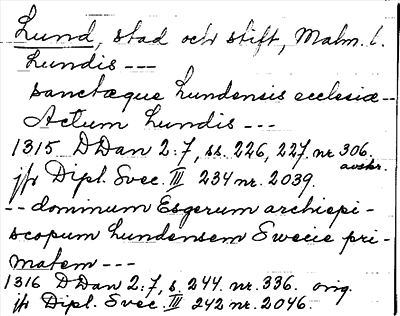 Lund, stad och stift, Malm. l.
Lundis ---
sanctæque Lundensis ecclesiæ --
Actum Lundis ---
1315 DDan 2:7, ss. 226, 227. nr 306.
avskr.
jfr Dipl. Svec. III 234 nr. 2039.
-- dominum Esgerum archiepi-
scopum Lundensem Swecie pri-
matem ---
1316 DDan 2:7, s. 244. nr. 336. orig.
jfr Dipl. Svec. III 242 nr. 2046.